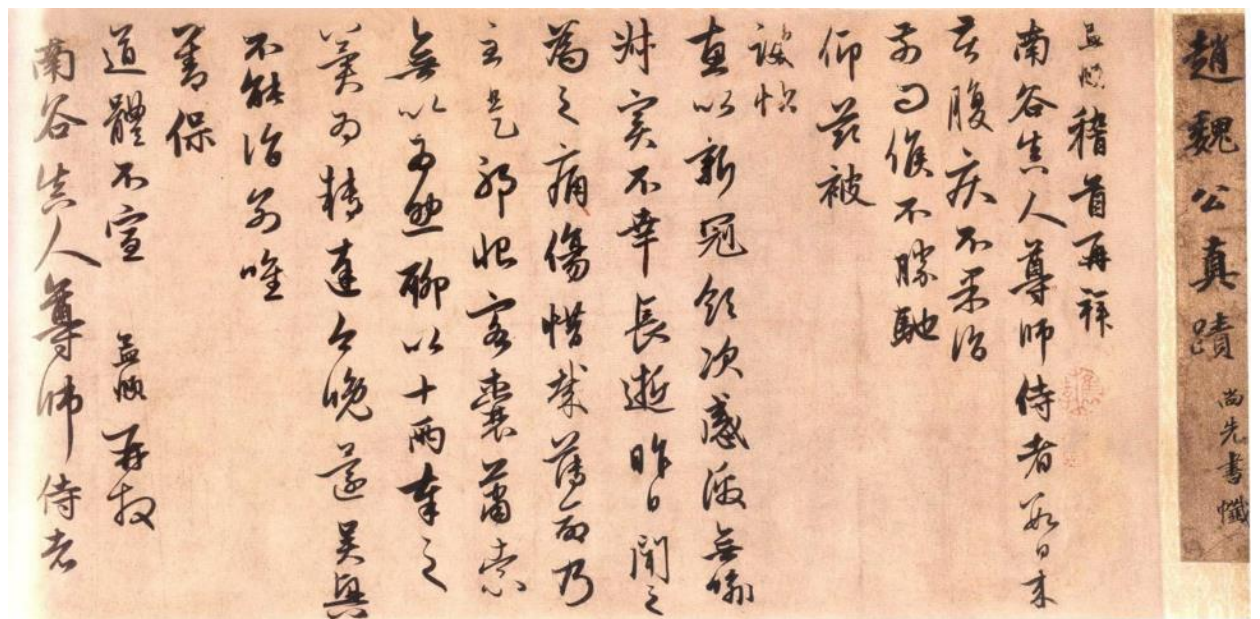 趙魏公真蹟 尚先書懺
孟頫稽首再拜
南谷真人尊師侍者數日來
苦腹疾不果詣
前問候不勝馳
仰茲被
誨帖
惠以新冠領次感激無喻
叔實不幸長逝昨日聞之
為之痛傷惜哉舊乃
主是耶恨客囊蕭索
無以為助聊以十兩奉之
冀為轉達今晚還吳興
不能詣前唯
善保
道體不宣 孟頫再拜
南谷真人尊師侍者